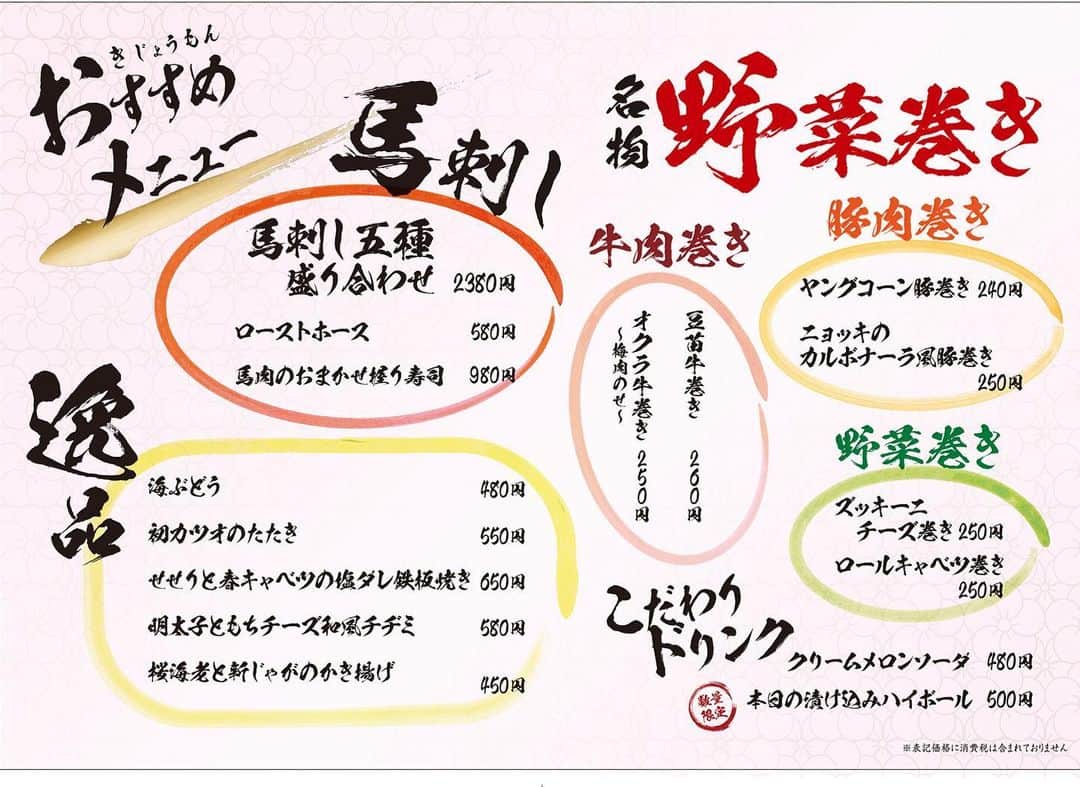 きじょうもん
おすすめ
メニュー
馬刺し
馬刺し五種
盛り合わせ 2380円
ローストホース 580円
馬肉のおまかせ握り寿司 980円
逸品
海ぶどう 480円
初カツオのたたき 550円
せせりと春キャベツの塩ダレ鉄板焼き 650円
明太子ともちチーズ和風チヂミ 580円
桜海老と新じゃがのかき揚げ 450円
名物
野菜巻き
牛肉巻き
豆苗牛巻き 260円
オクラ牛巻き 250円
～梅肉のせ～
豚肉巻き
ヤングコーン豚巻き 240円
ニョッキの
カルボナーラ風豚巻き
250円
野菜巻き
ズッキーニ
チーズ巻き 250円
ロールキャベツ巻き
250円
こだわり
ドリンク
クリームメロンソーダ 480円
数量
限定
本日の漬け込みハイボール 500円
※表記価格に消費税は含まれておりません